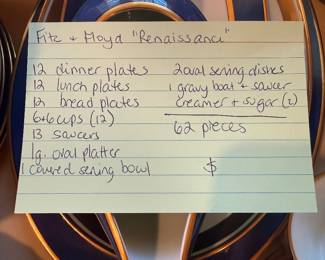 Fitz + Floyd "Renaissance"
12 dinner plates
12 lunch plates
12 bread plates
6+6 cups (12)
13 saucers
1g. oval platter
1 covered serving bowl
2 oval serving dishes
1 gravy boat + saucer
creamer + sugar (2)
62 pieces
$